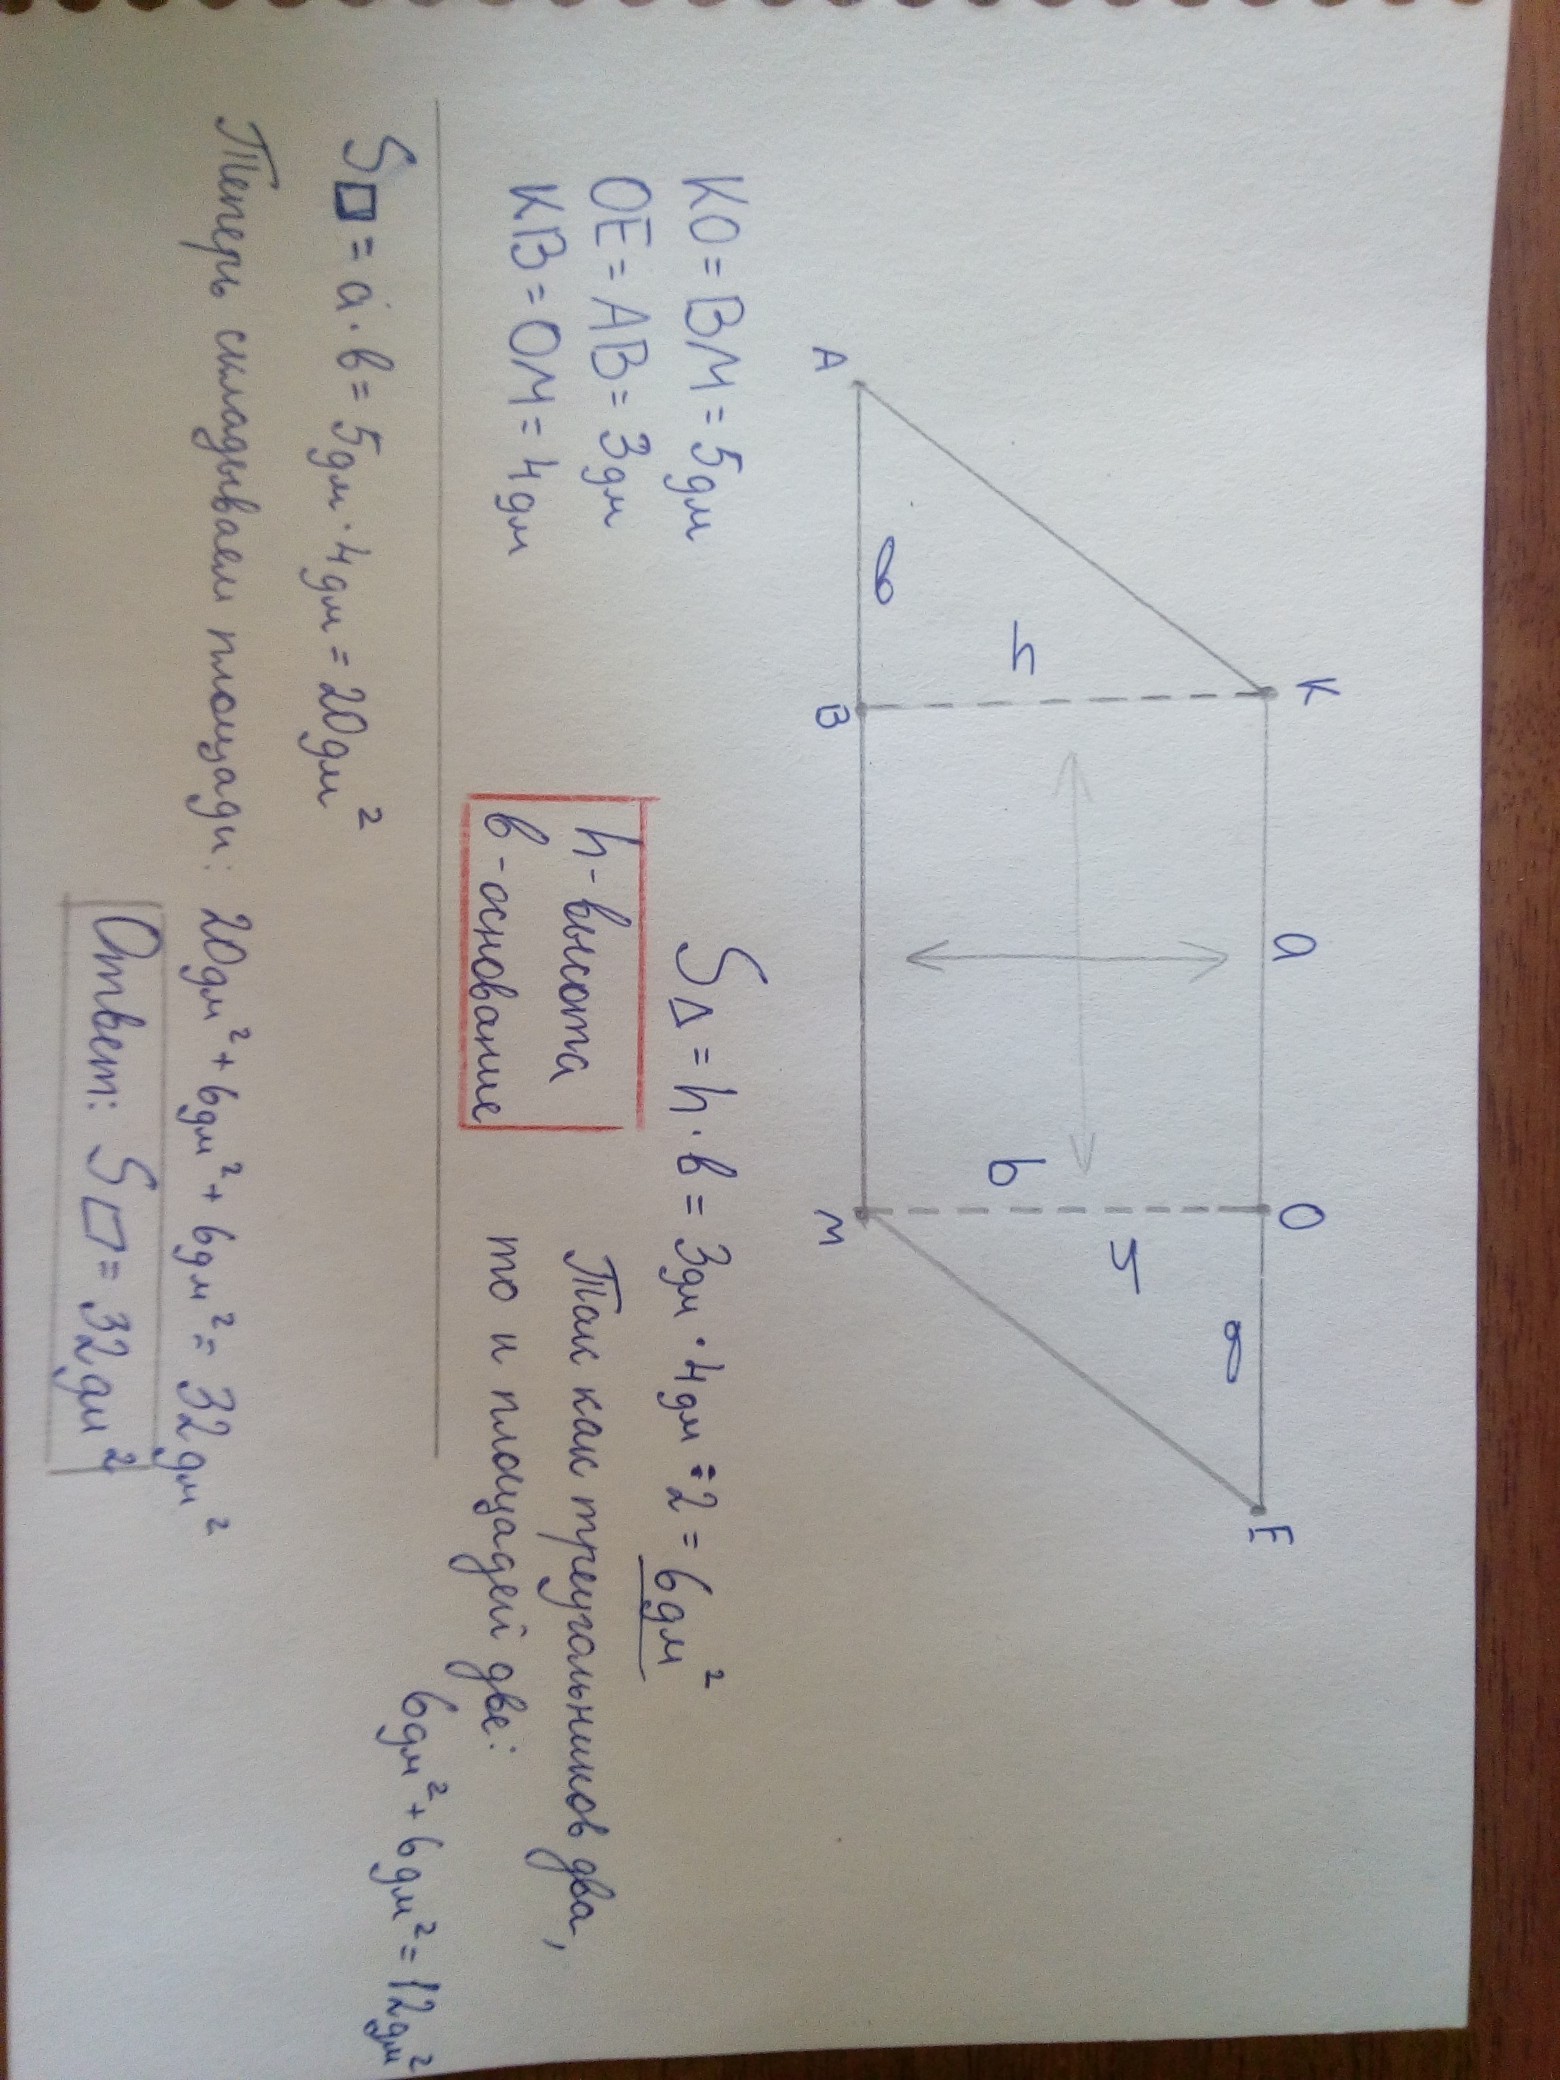 K a O E
h b h в
A в B M
KO = BM = 5дм
OE = AB = 3дм
KB = OM = 4дм
S△ = h · в = 3дм · 4дм : 2 = 6дм²
h - высота
в - основание
Так как треугольников два,
то и площадей две:
6дм² + 6дм² = 12дм²
S▭ = a · в = 5дм · 4дм = 20дм²
Теперь складываем площади: 20дм² + 6дм² + 6дм² = 32дм²
Ответ: S▱ = 32дм²